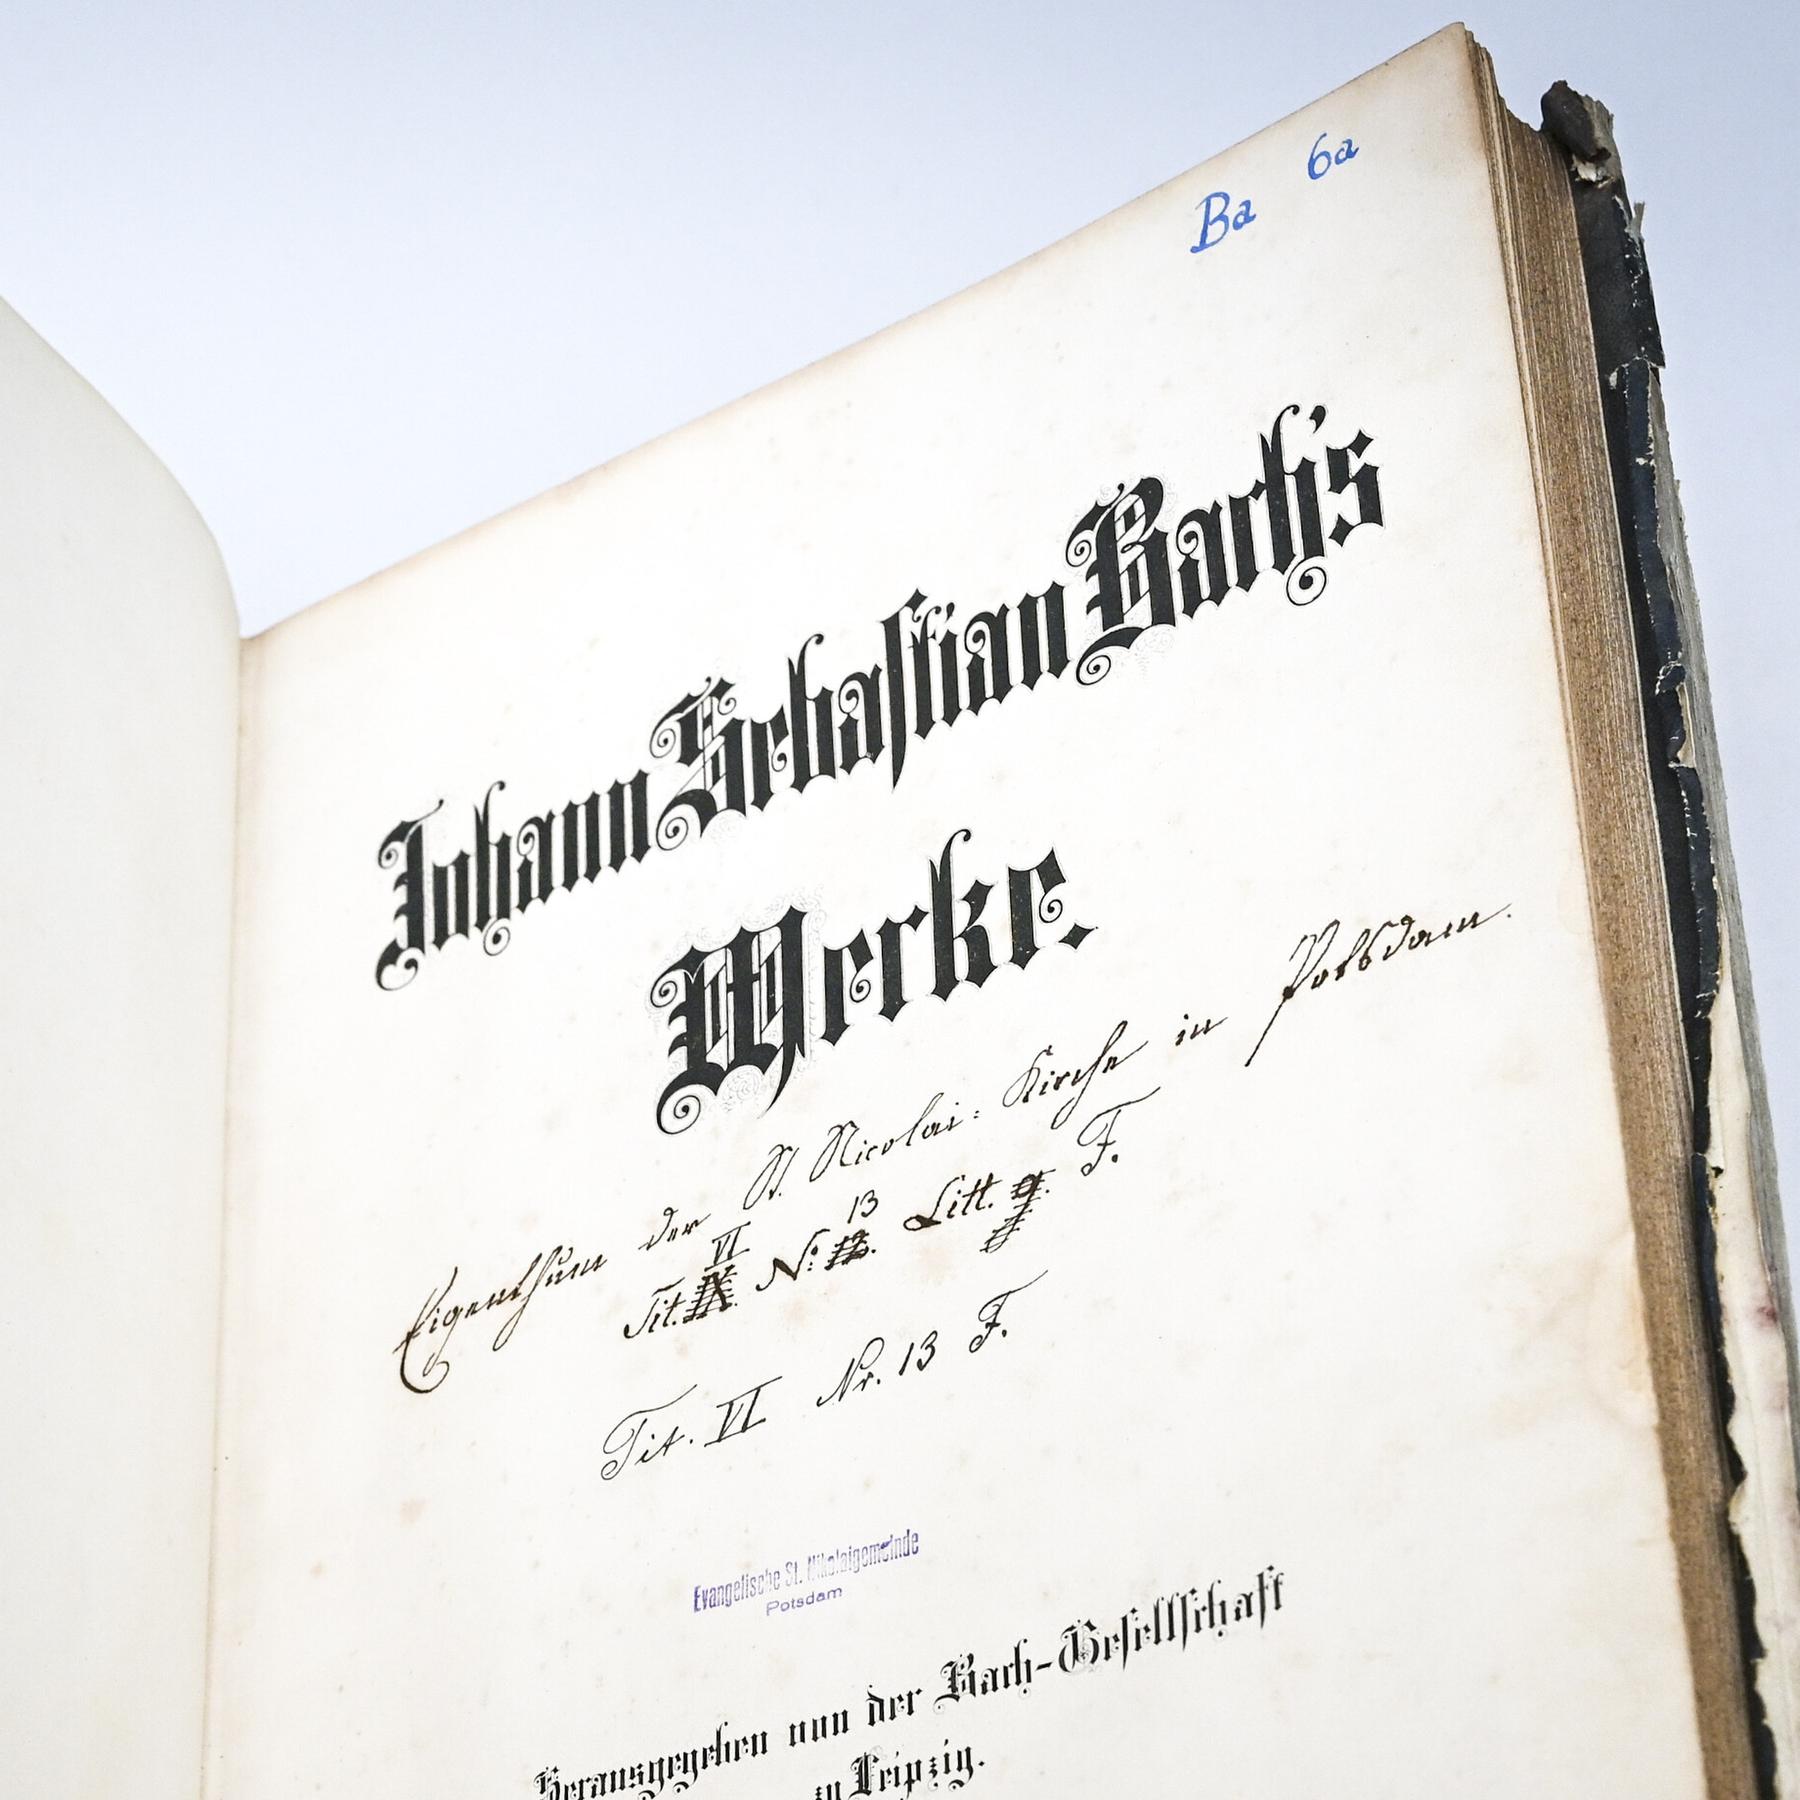 6a
Ba
Johann Sebastian Bach's
Werke.
Eigenthum der St. Nicolai: Kirche in Potsdam.
VI 13
Tit. IX. No: 12. Litt. g. F.
Tit. VI Nr. 13 F.
Evangelische St. Nikolaigemeinde
Potsdam
Herausgegeben von der Bach-Gesellschaft
zu Leipzig.